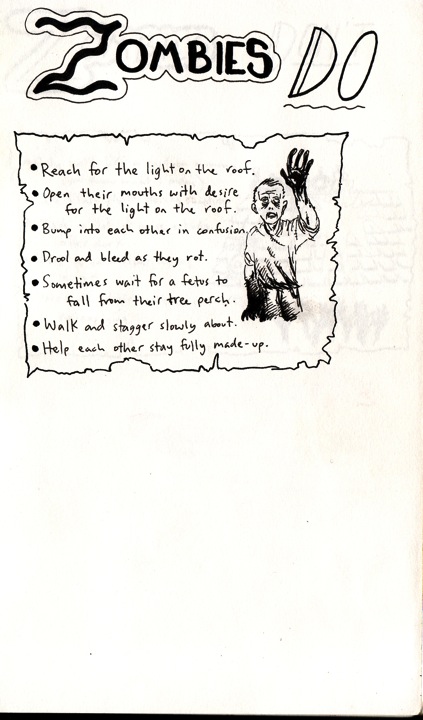 ZOMBIES DO
• Reach for the light on the roof.
• Open their mouths with desire
for the light on the roof.
• Bump into each other in confusion.
• Drool and bleed as they rot.
• Sometimes wait for a fetus to
fall from their tree perch.
• Walk and stagger slowly about.
• Help each other stay fully made-up.